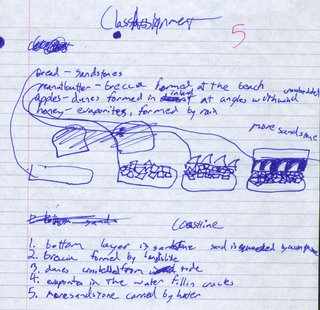 Class Assignment
5
bread - sandstones
peanutbutter - breccia formed at the beach
apples - dunes formed in inland at angles with wind
honey - evaporites, formed by rain
more sandstone
bottom sand
Coastline
1. bottom layer is sandstone sand is
2. breccia formed by landslide
3. dunes from side
4. evaporites in the water fill in cracks
5. more sandstone carried by water